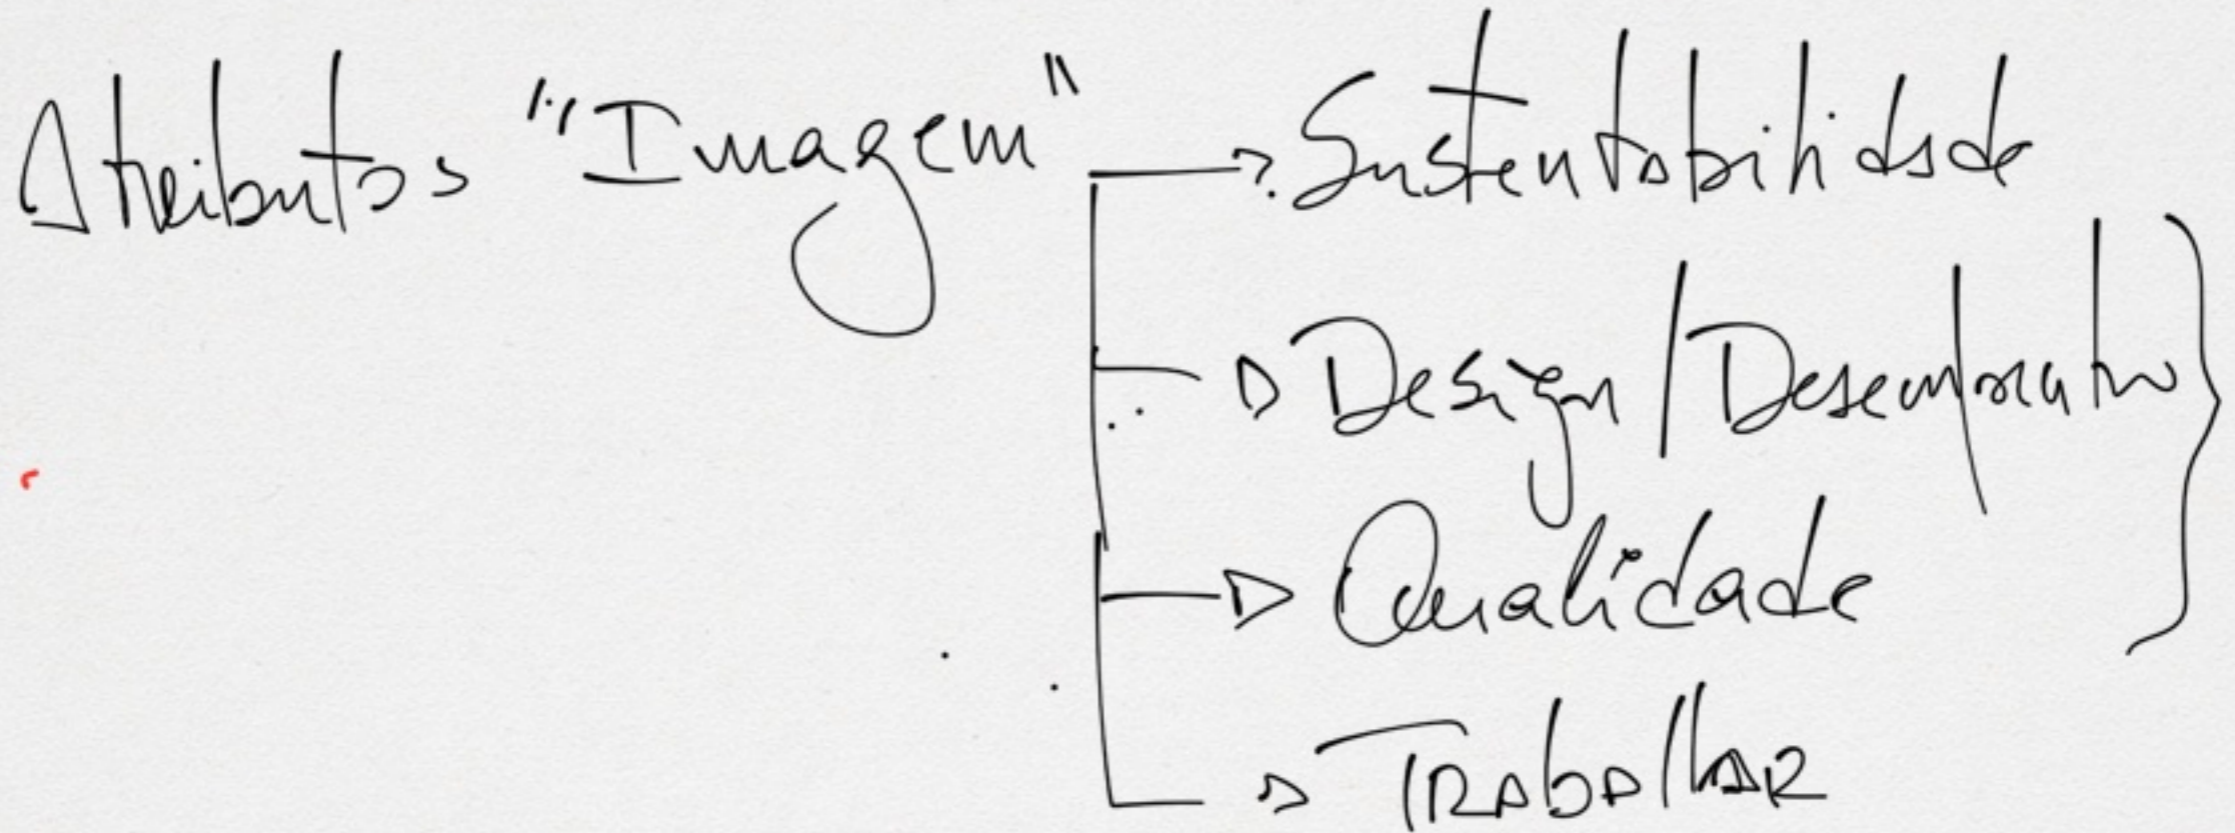 Atributos "Imagem" → Sustentabilidade
→ Design /
→ Qualidade
→ Trabalhar